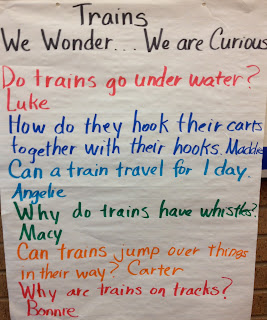 Trains
We Wonder... We are Curious
Do trains go under water?
Luke
How do they hook their carts
together with their hooks. Maddie
Can a train travel for 1 day.
Angelie
Why do trains have whistles?
Macy
Can trains jump over things
in their way? Carter
Why are trains on tracks?
Bonnie